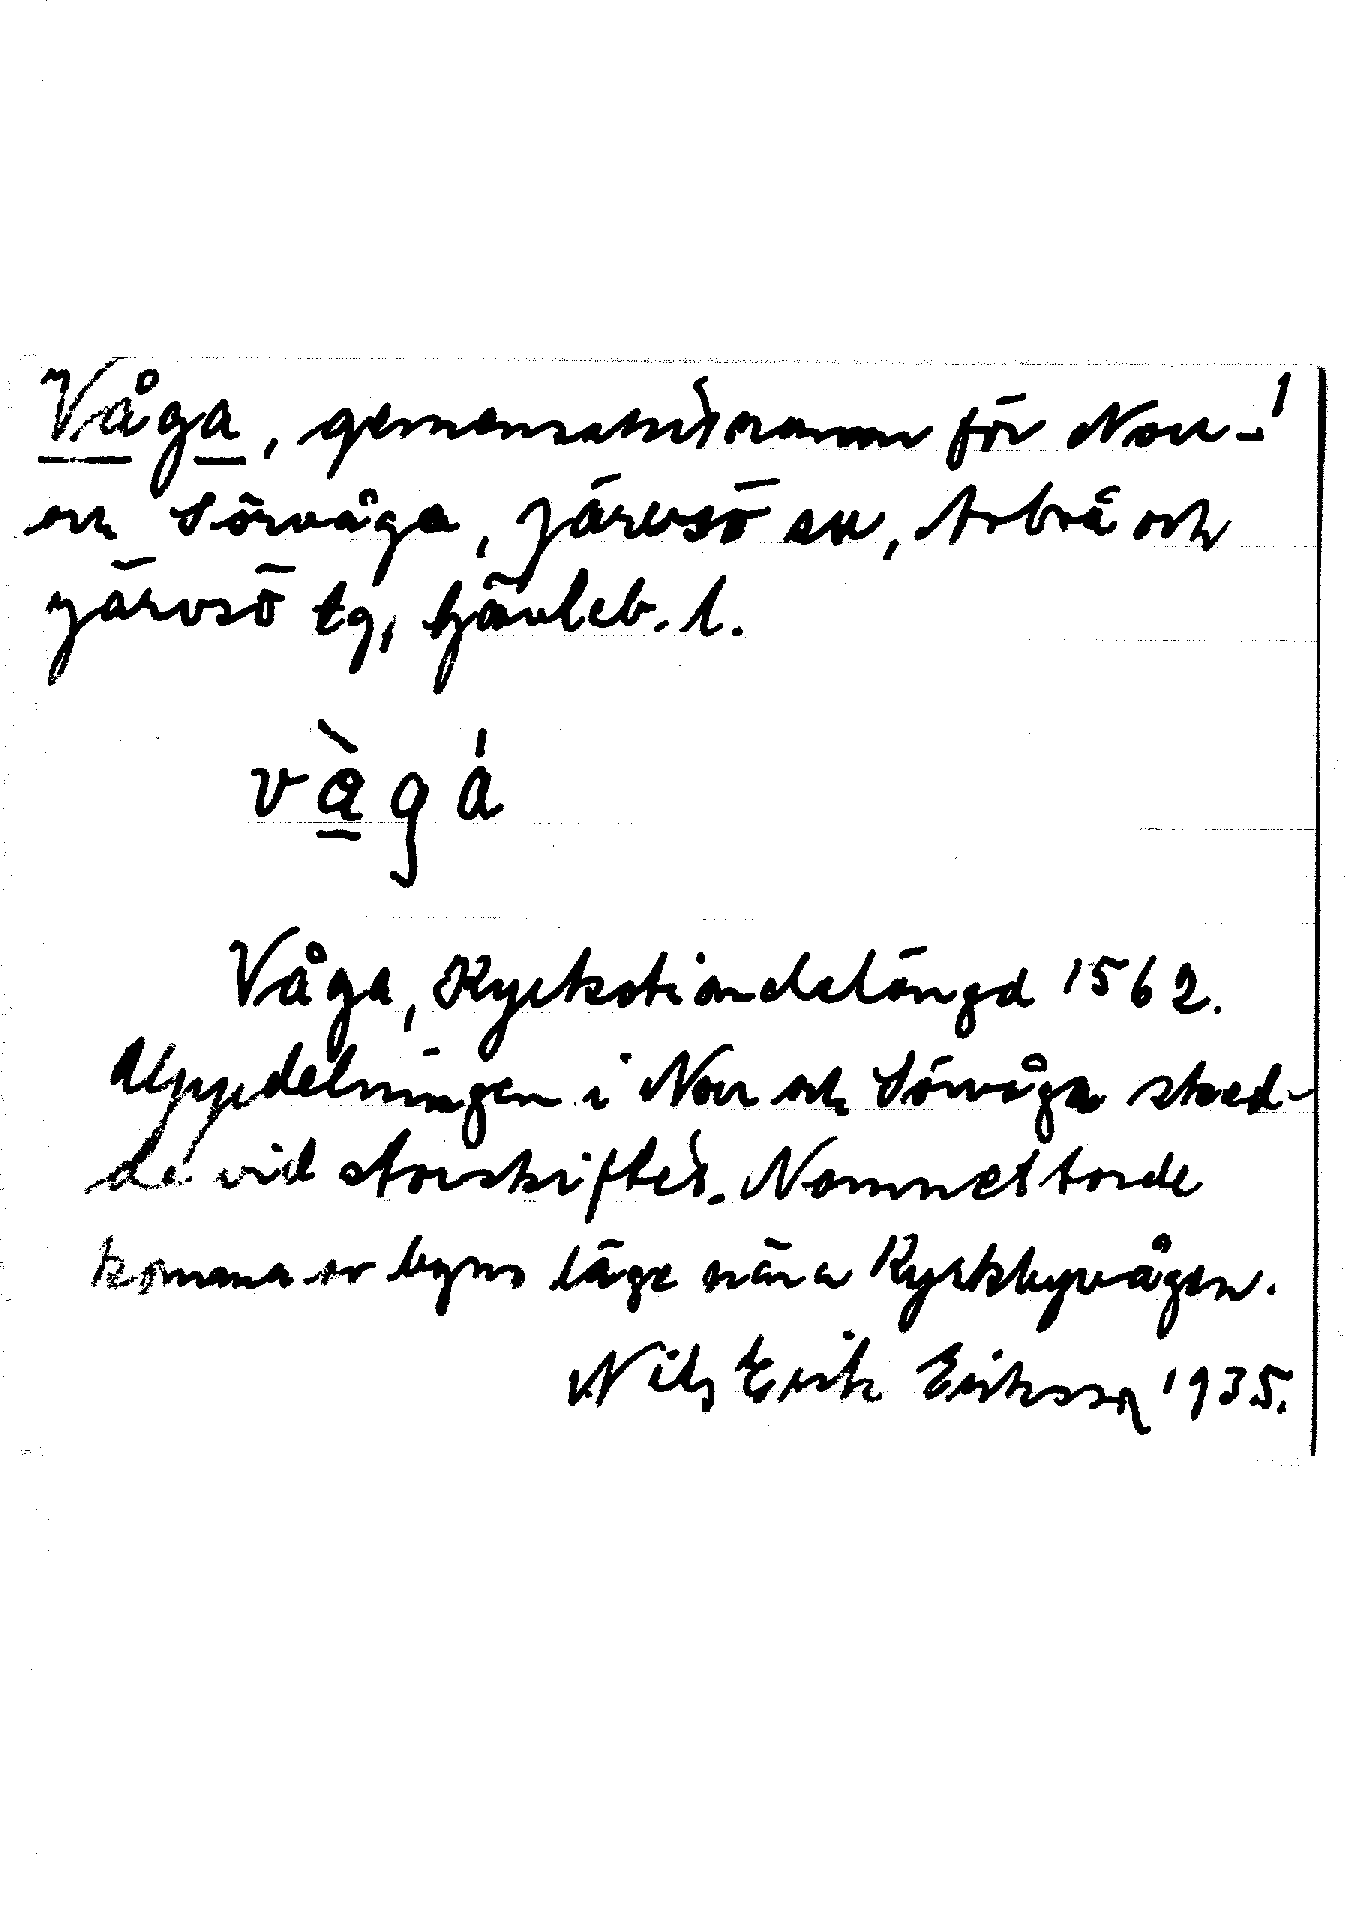 Våga, gemensamt namn för Norr- 1
och Sörvåga, Järvsö sn, Arbrå och
Järvsö tg, Gävleb. l.
vàgá
Våga, Kyrkotiondelängd 1562.
Uppdelningen i Norr och Sörvåga sked-
de vid storskiftet. Namnet torde
komma av byns läge nära Kyrkbyvågen.
Nils Erik Eriksson 1935.